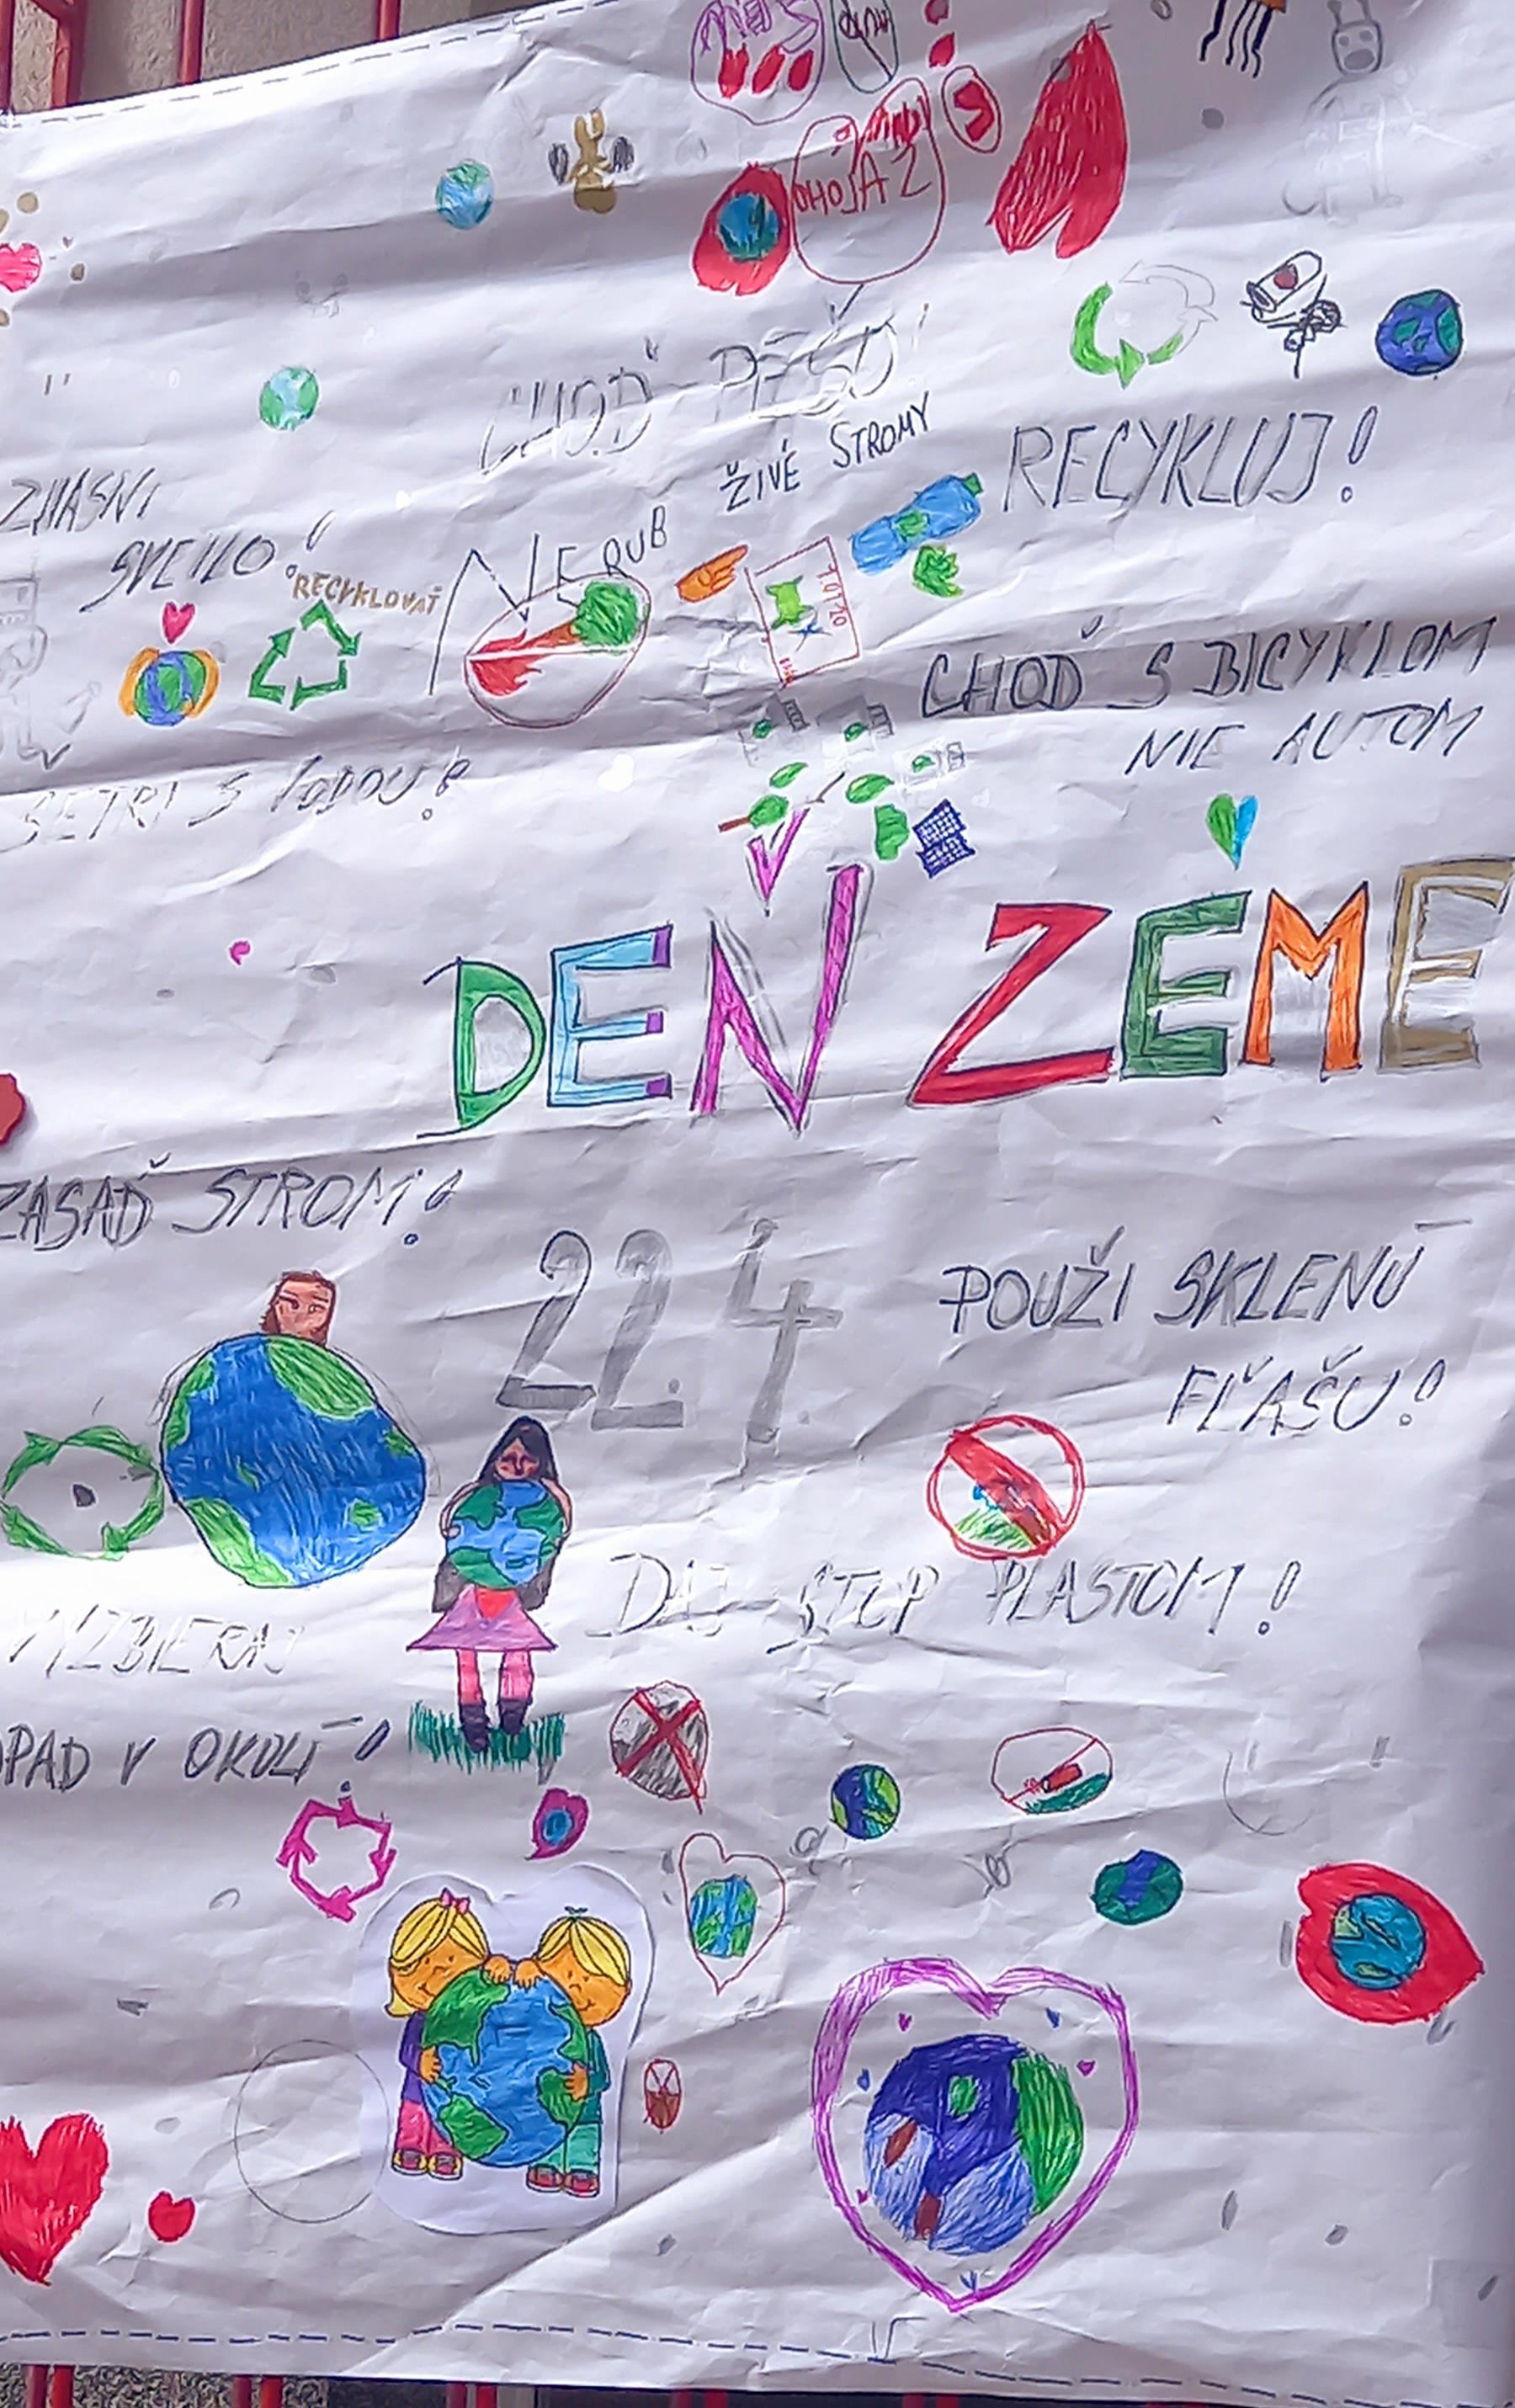 CHOĎ PEŠO!
ŽIVÉ STROMY
RECYKLUJ!
ZHASNI
SVETLO!
RECYKLOVAŤ
NERUB
CHOĎ S BICYKLOM
NIE AUTOM
ŠETRI S VODOU!
DEŇ ZEME
ZASAĎ STROM!
22.4.
POUŽI SKLENÚ
FĽAŠU!
DAJ STOP PLASTOM!
VYZBIERAJ
OPAD V OKOLÍ!